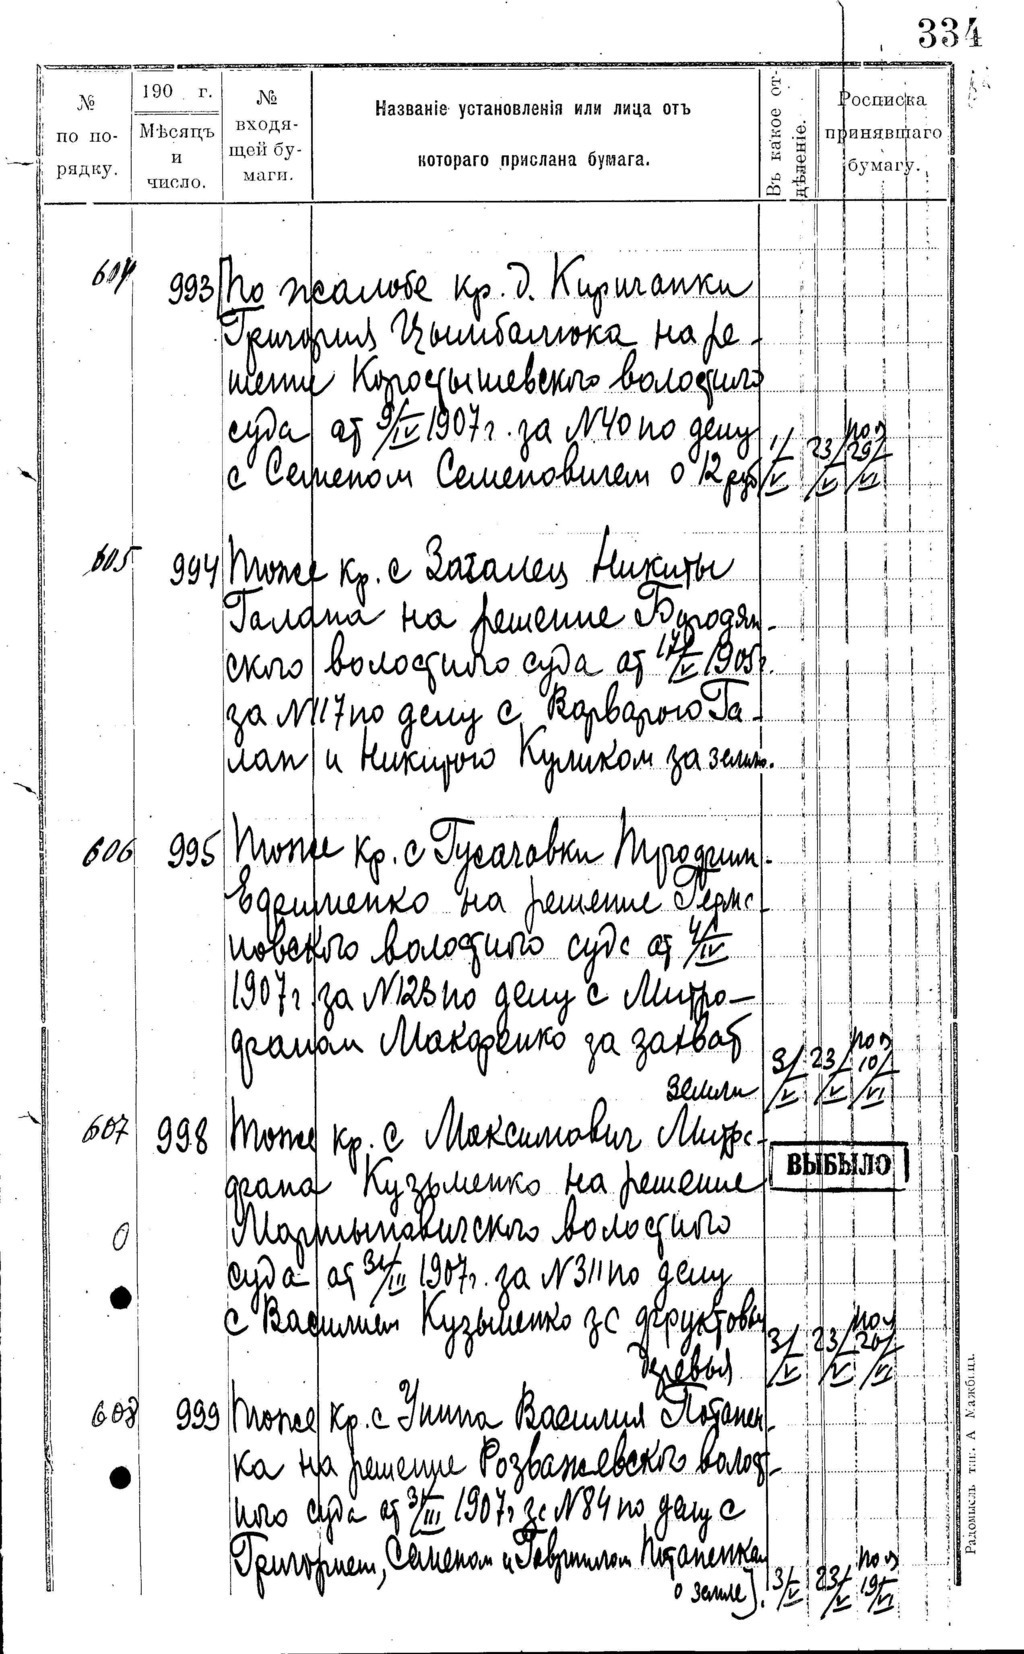 334
№ по по-рядку.
190 . г.
Мѣсяцъ и число.
№ входя-щей бу-маги.
Названіе установленія или лица отъ
котораго прислана бумага.
Въ какое от-дѣленіе.
Росписка принявшаго бумагу.
604 993 По жалобе кр. д. Киричанки
Григория Цымбалюка на ре-
шение Коростышевского волостного
суда от 9/IV 1907 г. за N 40 по делу
с Семеном Семеновичем о 12 руб
1/V 23/V пол 29/VI
605 994 Тоже кр. с Загалец Никиты
Галапа на решение Бородян-
ского волостного суда от 17/V 1905 г.
за N 117 по делу с Варварою Га-
лап и Никитою Куликом за землю.
606 995 Тоже кр. с Гусачовки Трофим
Ефименко на решение
новского волостного суда от 4/IV
1907 г. за N 123 по делу с Митро-
фаном Макаренко за захват
земли
3/V 23/V пол 10/VI
607 998 Тоже кр. с Максимович Митро-
фана Кузьменко на решение
ВЫБЫЛО
Мартыновичского волостного
0
суда от 31/III 1907 г. за N 311 по делу
с Василием Кузьменко за фруктовые
деревья
3/V 23/V пол 20/VI
608 999 Тоже кр. с Унина Василия Потапен-
ка на решение Розважевского волост-
ного суда от 31/III 1907 г за N 84 по делу с
Григорием, Семеном и Гавриилом Потапенка
о земле].
3/V 23/V пол 19/VI
Радомысль тип. А Мажбица.